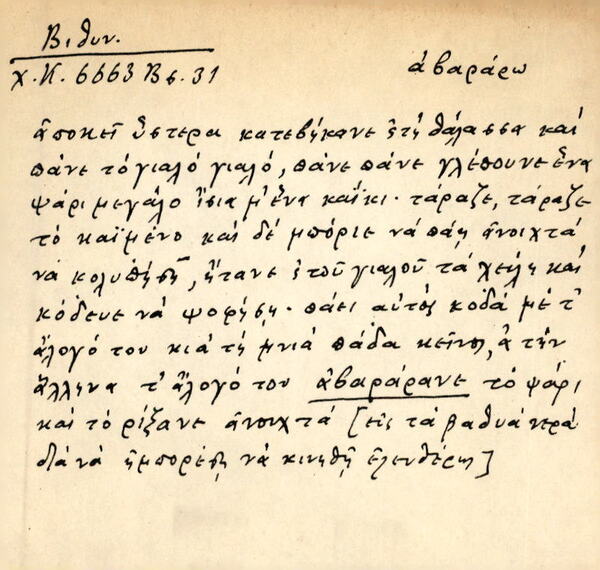 Βιθυν.
Χ.Κ. 6663 Βε. 31
ἀβαράρω
ἀποκεῖ ὕστερα κατεβήκανε 'ς τὴ θάλασσα καὶ
πᾶνε τὸ γιαλὸ γιαλό, πᾶνε πᾶνε γλέπουνε ἕνα
ψάρι μεγάλο ἴσια μ' ἕνα καΐκι. τάραζε, τάραζε
τὸ καϊμένο καὶ δὲ μπόριε νὰ πάῃ ἀνοιχτὰ
νὰ κολυπήσῃ, ἤτανε 'ς τοῦ γιαλοῦ τὰ χείλη καὶ
κόδευε νὰ ψοφήσῃ. πάει αὐτὸς κοδὰ μὲ τ'
ἄλογό του κι ἀ τὴ μνιὰ πάδα κεῖνος, ἀ τὴν
ἄλληνα τ' ἄλογό του ἀβαράρανε τὸ ψάρι
καὶ τὸ ρίξανε ἀνοιχτὰ [εἰς τὰ βαθυὰ νερὰ
διὰ νὰ ἠμπορέσῃ νὰ κινηθῇ ἐλευθέρως]